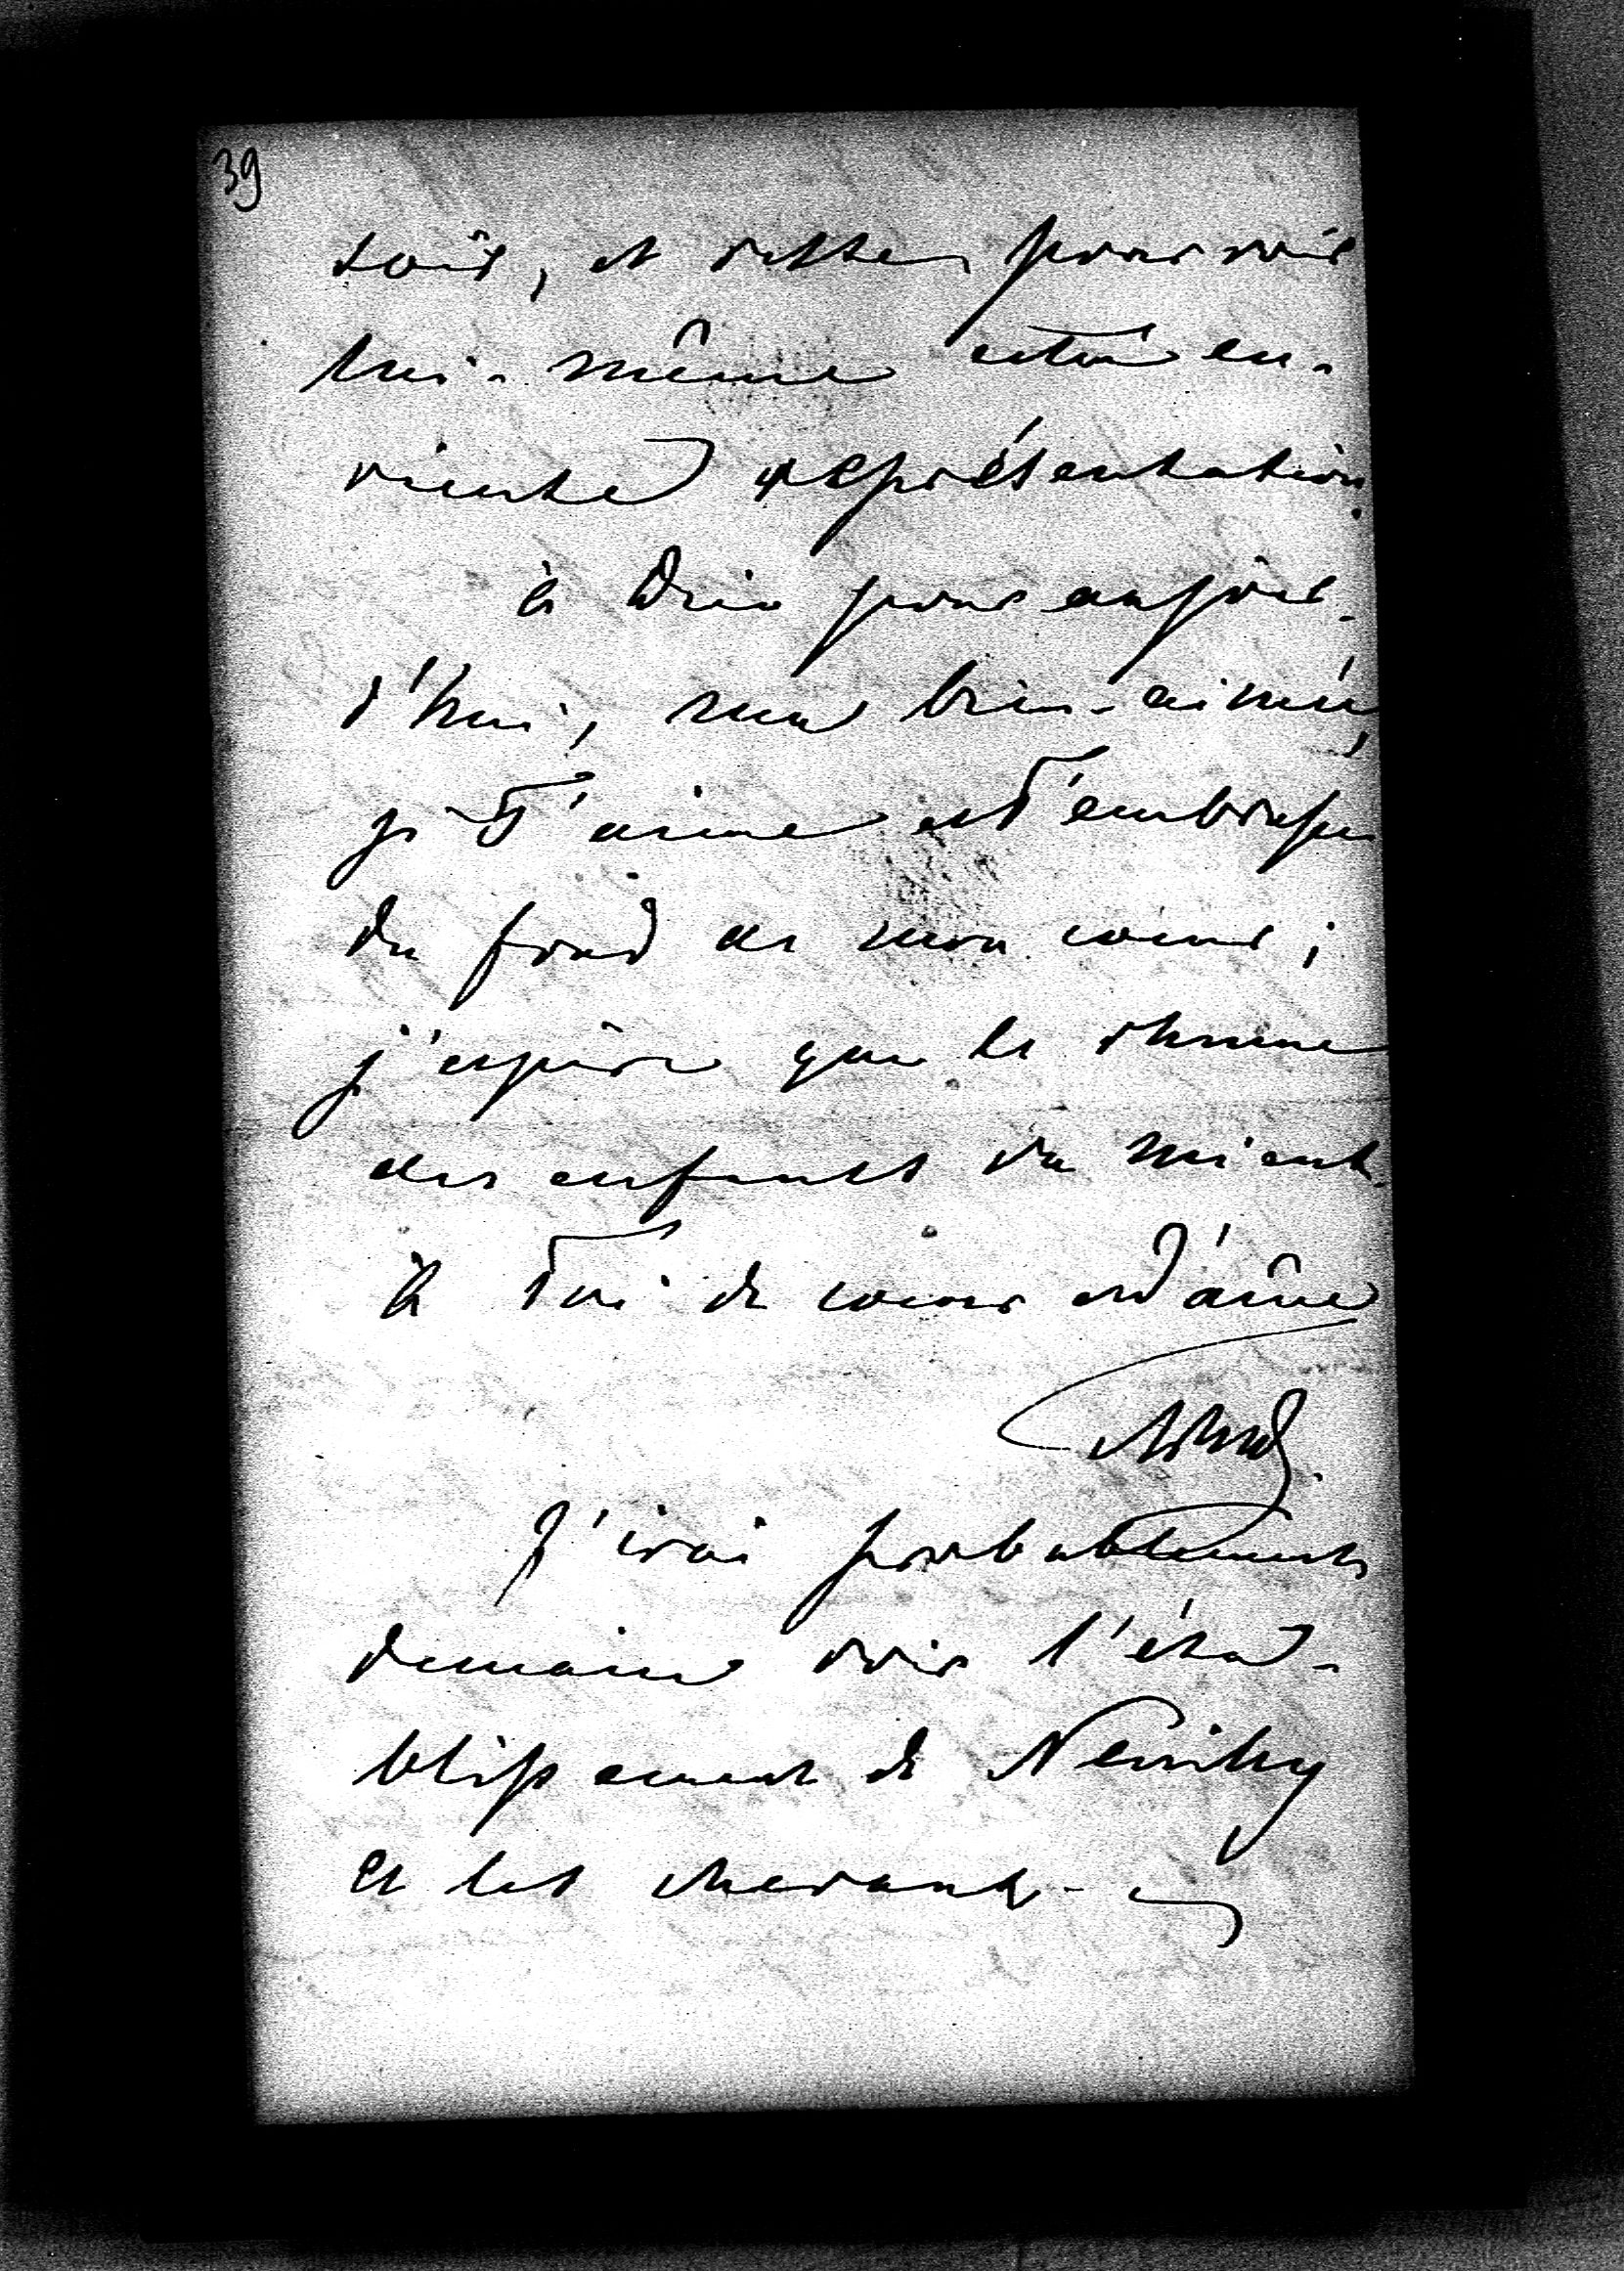 39
soir, et rester pour voir
lui-même cette en-
nuyeuse représentation.
à Dieu pour aujour-
d'hui, ma bien-aimée,
je t'aime et t'embrasse
du fond de mon coeur ;
j'espère que le rhume
des enfants va mieux.
à toi de coeur et d'âme
J'irai probablement
demain voir l'éta-
blissement de Neuilly
et les chevaux.